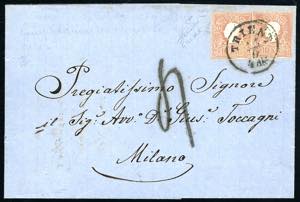 TRIENT
Pregiatissimo Signore
il Sig.r Avv. D.r Gius. Toccagni
Milano